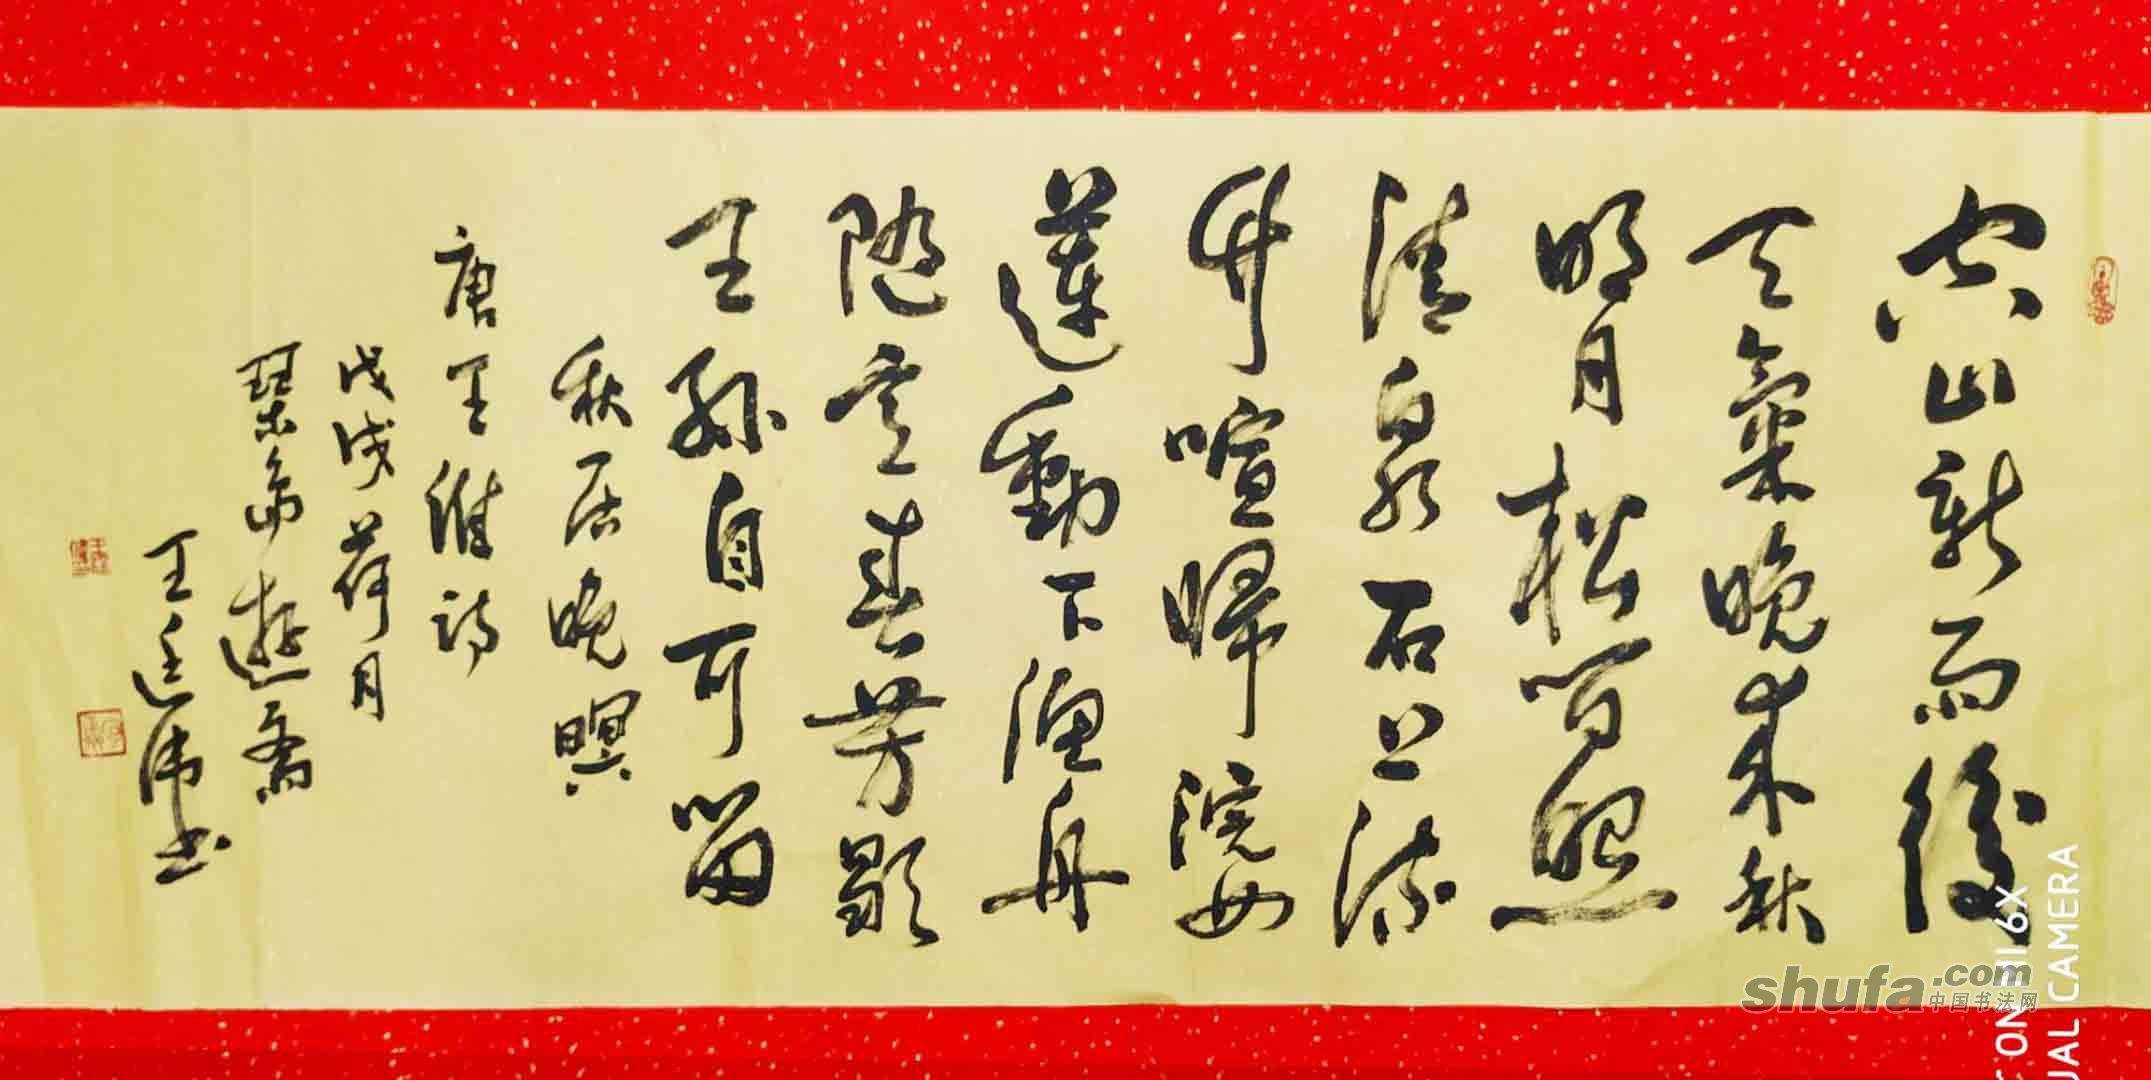 空山新雨後
天氣晚来秋
明月松间照
清泉石上流
竹喧歸浣女
蓮動下漁舟
随意春芳歇
王孫自可留
秋居晚暝
唐王維詩
戊戌荷月
琴島遊斋
王廷伟书
shufa.com
中国书法网
ON MI 6X
UAL CAMERA